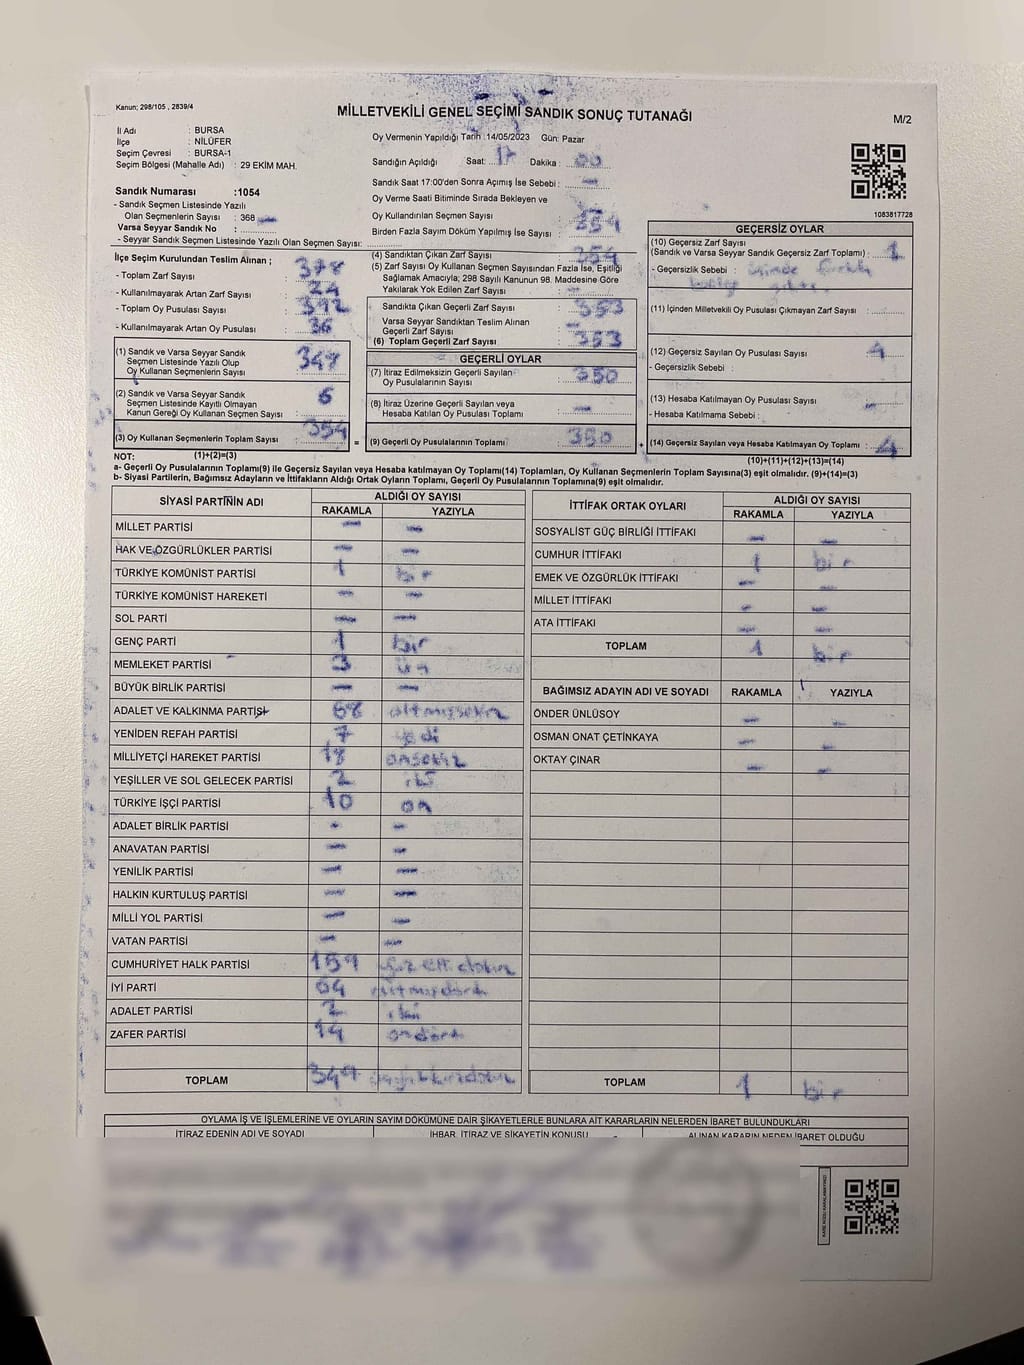 Kanun: 298/105 , 2839/4
MİLLETVEKİLİ GENEL SEÇİMİ SANDIK SONUÇ TUTANAĞI
M/2
İl Adı : BURSA
İlçe : NİLÜFER
Seçim Çevresi : BURSA-1
Seçim Bölgesi (Mahalle Adı) : 29 EKİM MAH.
Sandık Numarası :1054
- Sandık Seçmen Listesinde Yazılı
Olan Seçmenlerin Sayısı : 368
Varsa Seyyar Sandık No :
- Seyyar Sandık Seçmen Listesinde Yazılı Olan Seçmen Sayısı:
Oy Vermenin Yapıldığı Tarih :14/05/2023 Gün: Pazar
Sandığın Açıldığı Saat: 17 Dakika : 00
Sandık Saat 17:00'den Sonra Açımış İse Sebebi : —
Oy Verme Saati Bitiminde Sırada Bekleyen ve
Oy Kullandırılan Seçmen Sayısı
Birden Fazla Sayım Döküm Yapılmış İse Sayısı : 354
1083817728
İlçe Seçim Kurulundan Teslim Alınan ;
- Toplam Zarf Sayısı : 378
- Kullanılmayarak Artan Zarf Sayısı : 24
- Toplam Oy Pusulası Sayısı : 392
- Kullanılmayarak Artan Oy Pusulası : 36
(1) Sandık ve Varsa Seyyar Sandık
Seçmen Listesinde Yazılı Olup
Oy Kullanan Seçmenlerin Sayısı : 347
(2) Sandık ve Varsa Seyyar Sandık
Seçmen Listesinde Kayıtlı Olmayan
Kanun Gereği Oy Kullanan Seçmen Sayısı : 6
(3) Oy Kullanan Seçmenlerin Toplam Sayısı : 354
(4) Sandıktan Çıkan Zarf Sayısı : 354
(5) Zarf Sayısı Oy Kullanan Seçmen Sayısından Fazla İse, Eşitliği
Sağlamak Amacıyla; 298 Sayılı Kanunun 98. Maddesine Göre
Yakılarak Yok Edilen Zarf Sayısı : —
Sandıkta Çıkan Geçerli Zarf Sayısı : 353
Varsa Seyyar Sandıktan Teslim Alınan
Geçerli Zarf Sayısı : —
(6) Toplam Geçerli Zarf Sayısı : 353
GEÇERLİ OYLAR
(7) İtiraz Edilmeksizin Geçerli Sayılan
Oy Pusulalarının Sayısı : 350
(8) İtiraz Üzerine Geçerli Sayılan veya
Hesaba Katılan Oy Pusulası Toplamı : —
= (9) Geçerli Oy Pusulalarının Toplamı : 350
GEÇERSİZ OYLAR
(10) Geçersiz Zarf Sayısı
(Sandık ve Varsa Seyyar Sandık Geçersiz Zarf Toplamı) : 1
- Geçersizlik Sebebi : içinde
(11) İçinden Milletvekili Oy Pusulası Çıkmayan Zarf Sayısı :
(12) Geçersiz Sayılan Oy Pusulası Sayısı : 4
- Geçersizlik Sebebi :
(13) Hesaba Katılmayan Oy Pusulası Sayısı : —
- Hesaba Katılmama Sebebi :
+ (14) Geçersiz Sayılan veya Hesaba Katılmayan Oy Toplamı : 4
NOT: (1)+(2)=(3)
(10)+(11)+(12)+(13)=(14)
a- Geçerli Oy Pusulalarının Toplamı(9) ile Geçersiz Sayılan veya Hesaba katılmayan Oy Toplamı(14) Toplamları, Oy Kullanan Seçmenlerin Toplam Sayısına(3) eşit olmalıdır. (9)+(14)=(3)
b- Siyasi Partilerin, Bağımsız Adayların ve İttifakların Aldığı Ortak Oyların Toplamı, Geçerli Oy Pusulalarının Toplamına(9) eşit olmalıdır.
SİYASİ PARTİNİN ADI ALDIĞI OY SAYISI
RAKAMLA YAZIYLA
MİLLET PARTİSİ — —
HAK VE ÖZGÜRLÜKLER PARTİSİ — —
TÜRKİYE KOMÜNİST PARTİSİ 1 bir
TÜRKİYE KOMÜNİST HAREKETİ — —
SOL PARTİ — —
GENÇ PARTİ 1 bir
MEMLEKET PARTİSİ 3 üç
BÜYÜK BİRLİK PARTİSİ — —
ADALET VE KALKINMA PARTİSİ 68 altmışsekiz
YENİDEN REFAH PARTİSİ 7 yedi
MİLLİYETÇİ HAREKET PARTİSİ 18 onsekiz
YEŞİLLER VE SOL GELECEK PARTİSİ 2 iki
TÜRKİYE İŞÇİ PARTİSİ 10 on
ADALET BİRLİK PARTİSİ — —
ANAVATAN PARTİSİ — —
YENİLİK PARTİSİ — —
HALKIN KURTULUŞ PARTİSİ — —
MİLLİ YOL PARTİSİ — —
VATAN PARTİSİ — —
CUMHURİYET HALK PARTİSİ 159 yüz elli dokuz
İYİ PARTİ 64 altmışdört
ADALET PARTİSİ 2 iki
ZAFER PARTİSİ 14 ondört
TOPLAM 349
İTTİFAK ORTAK OYLARI ALDIĞI OY SAYISI
RAKAMLA YAZIYLA
SOSYALİST GÜÇ BİRLİĞİ İTTİFAKI — —
CUMHUR İTTİFAKI 1 bir
EMEK VE ÖZGÜRLÜK İTTİFAKI — —
MİLLET İTTİFAKI — —
ATA İTTİFAKI — —
TOPLAM 1 bir
BAĞIMSIZ ADAYIN ADI VE SOYADI RAKAMLA YAZIYLA
ÖNDER ÜNLÜSOY — —
OSMAN ONAT ÇETİNKAYA — —
OKTAY ÇINAR — —
TOPLAM 1 bir
OYLAMA İŞ VE İŞLEMLERİNE VE OYLARIN SAYIM DÖKÜMÜNE DAİR ŞİKAYETLERLE BUNLARA AİT KARARLARIN NELERDEN İBARET BULUNDUKLARI
İTİRAZ EDENİN ADI VE SOYADI İHBAR, İTİRAZ VE ŞİKAYETİN KONUSU ALINAN KARARIN NEDEN İBARET OLDUĞU